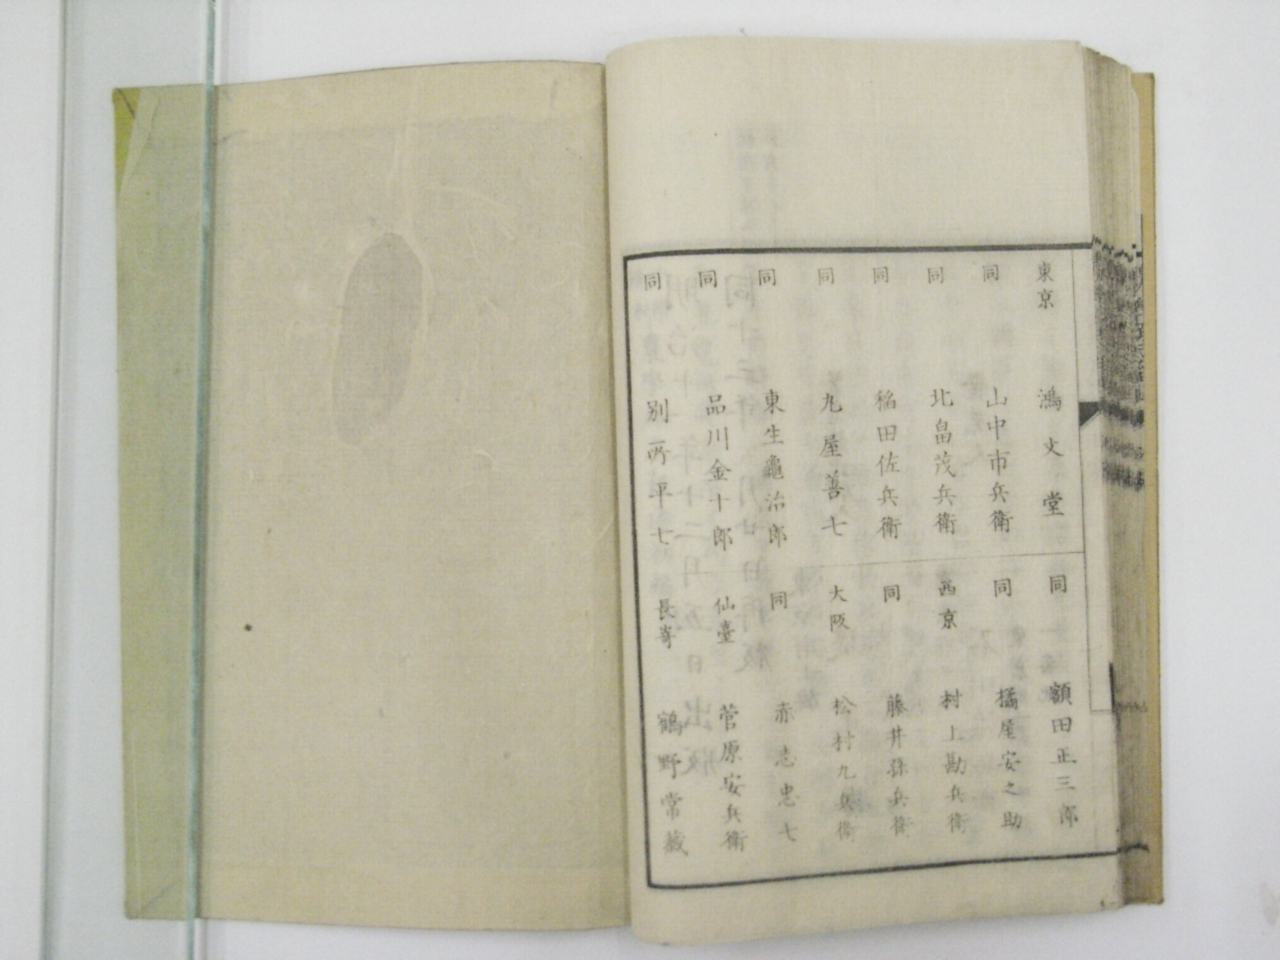 東京 鴻文堂
同 山中市兵衛
同 北畠茂兵衛
同 稲田佐兵衛
同 丸屋善七
同 東生龜治郎
同 品川金十郎
同 別所平七
同 額田正三郎
同 橘屋安之助
西京 村上勘兵衛
同 藤井孫兵衛
大阪 松村九兵衛
同 赤志忠七
仙臺 菅原安兵衛
長嵜 鶴野常藏